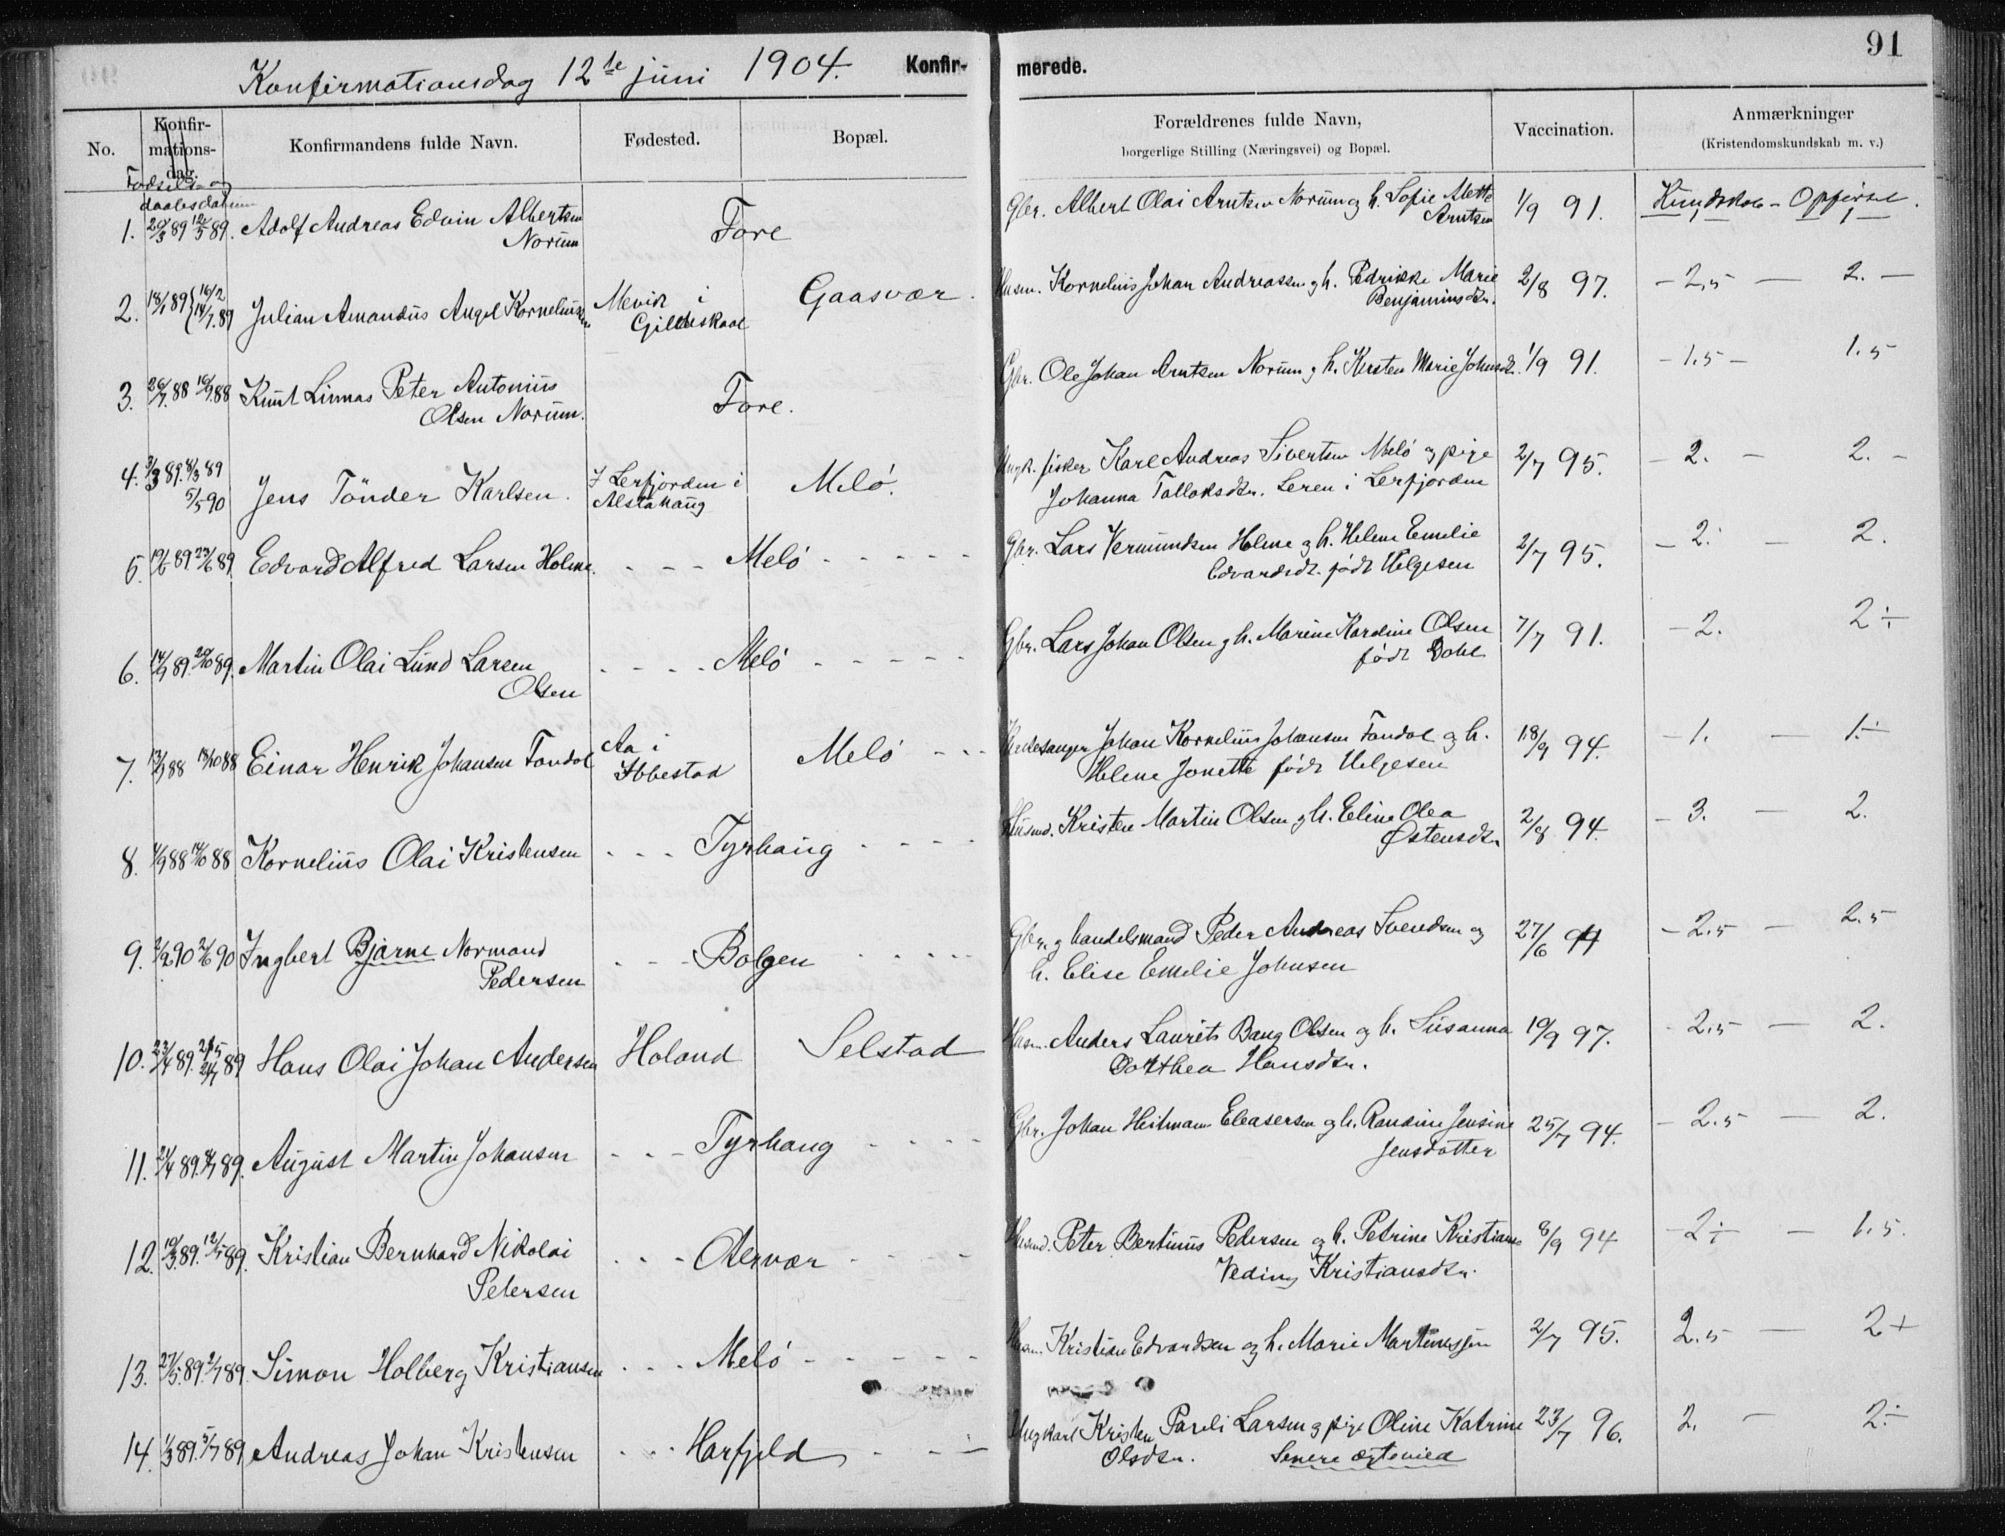 Konfirmationsdag 12te juni 1904. Konfir-
merede. 91
No. Konfir-mations-dag. Konfirmandens fulde Navn. Fødested. Bopæl. Forældrenes fulde Navn, borgerlige Stilling (Næringsvei) og Bopæl. Vaccination. Anmærkninger (Kristendomskundskab m. v.)
Fødsels- og
daabsdatum
Kundskab - Opførsel.
1. 20/3 89 12/5 89. Adolf Andreas Edvin Albertsen Fore Gbr. Albert Olai Arntsen Norum og h. Sofie Mette 1/9 91. 1 1
Norum Arntsen
2. 18/1 89 {16/2 14/7 89 Julian Amandus Angel Korneliussen Mevik i Gaasvær. Husm. Kornelius Johan Andreassen og h. Fedrikke Marie 2/8 97. - 2,5 - 2. -
Gildeskaal Benjaminsdtr.
3. 26/7 88 16/9 88 Knut Linnas Peter Antonius Fore. Gbr. Ole Johan Arntsen Norum og h. Kirsten Marie Johnsdt. 1/9 91. - 1.5 - 1.5
Olsen Norum.
4. 3/3 89. 8/3 89 Jens Tönder Karlsen. I Lerfjorden i Melö. Ungk. fisker Karl Andreas Sivertsen Melö og pige 2/7 95. - 2. - 2. -
5/5 90 Alstahaug Johanna Tollaksdtr. Leren i Lerfjorden
5. 19/5 89 23/6 89. Edvard Alfred Larsen Holme. - - - Melö - - - - - Gbr. Lars Vermundsen Holme og h. Helene Emelie 2/7 95. - 2. - 2.
Edvardsdt. födt Helgesen
6. 14/9 89. 20/10 89. Martin Olai Lund Larsen - - - - Melö - - - - - Gbr. Lars Johan Olsen og h. Marine Kardine Olsen 7/7 91. - 2. - 2 ÷
Olsen födt Dahl
7. 13/9 88 18/10 88 Einar Henrik Johansen Fondal Aa i Melö - - - Kirkesanger Johan Kornelius Johansen Fondal og h. 18/9 94. - 1. - 1.÷
Ibbestad Helene Jonette födt Helgesen
8. 1/9 88 14/10 88 Kornelius Olai Kristensen - - - Tyrhaug - - - - Husmd. Kristen Martin Olsen og h. Eline Olea 2/8 94. - 3. - 2.
Østensdtr.
9. 2/2 90 2/6 90 Ingbert Bjarne Normand - - - Bolgen - - - - - Gbr. og handelsmand Peder Andreas Svendsen og 27/6 91 - 2.5 - 2.5
Pedersen h. Elise Emelie Johnsen
10. 23/4 89. 24/5 21/7 89 Hans Olai Johan Andersen Holand Selstad Husm. Anders Laurits Bang Olsen og h. Susanna 19/9 97. - 2.5 - 2.
Dorthea Hansdtr.
11. 21/4 89. 8/7 89. August Martin Johansen - - - Tyrhaug - - - - Gbr. Johan Heitmann Eleasersen og h. Randine Jensine 25/7 94. - 2.5 - 2.
Jensdatter
12. 19/3 89. 12/5 89. Kristian Bernhard Nikolai - - - Otervær - - - Husmd. Peter Bertinus Pedersen og h. Petrine Kristiane 8/9 94 - 2 ÷ - 1.5.
Petersen Veding Kristiansdtr.
13. 27/5 89. 2/7 89. Simon Holberg Kristiansen - - - Melö - - - - - Husm. Kristian Edvardsen og h. Marie Martinussen 2/7 95. 2.5 - 2 +
14. 1/3 89. 5/7 89 Andreas Johan Kristensen - - - Harfjeld - - - Ungkarl Kristen Pareli Larsen og pige Oline Katrine 23/7 96. 2. - 2.÷
Olsdtr. Senere ægteviet